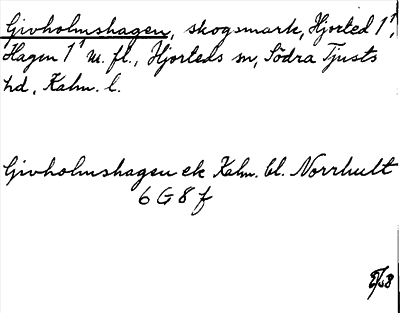 Givholmshagen, skogsmark, Hjorted 1¹,
Hagen 1¹ m. fl., Hjorteds sn, Södra Tjusts
hd, Kalm. l.
Givholmshagen ek Kalm. bl. Norrhult
6 G 8 f